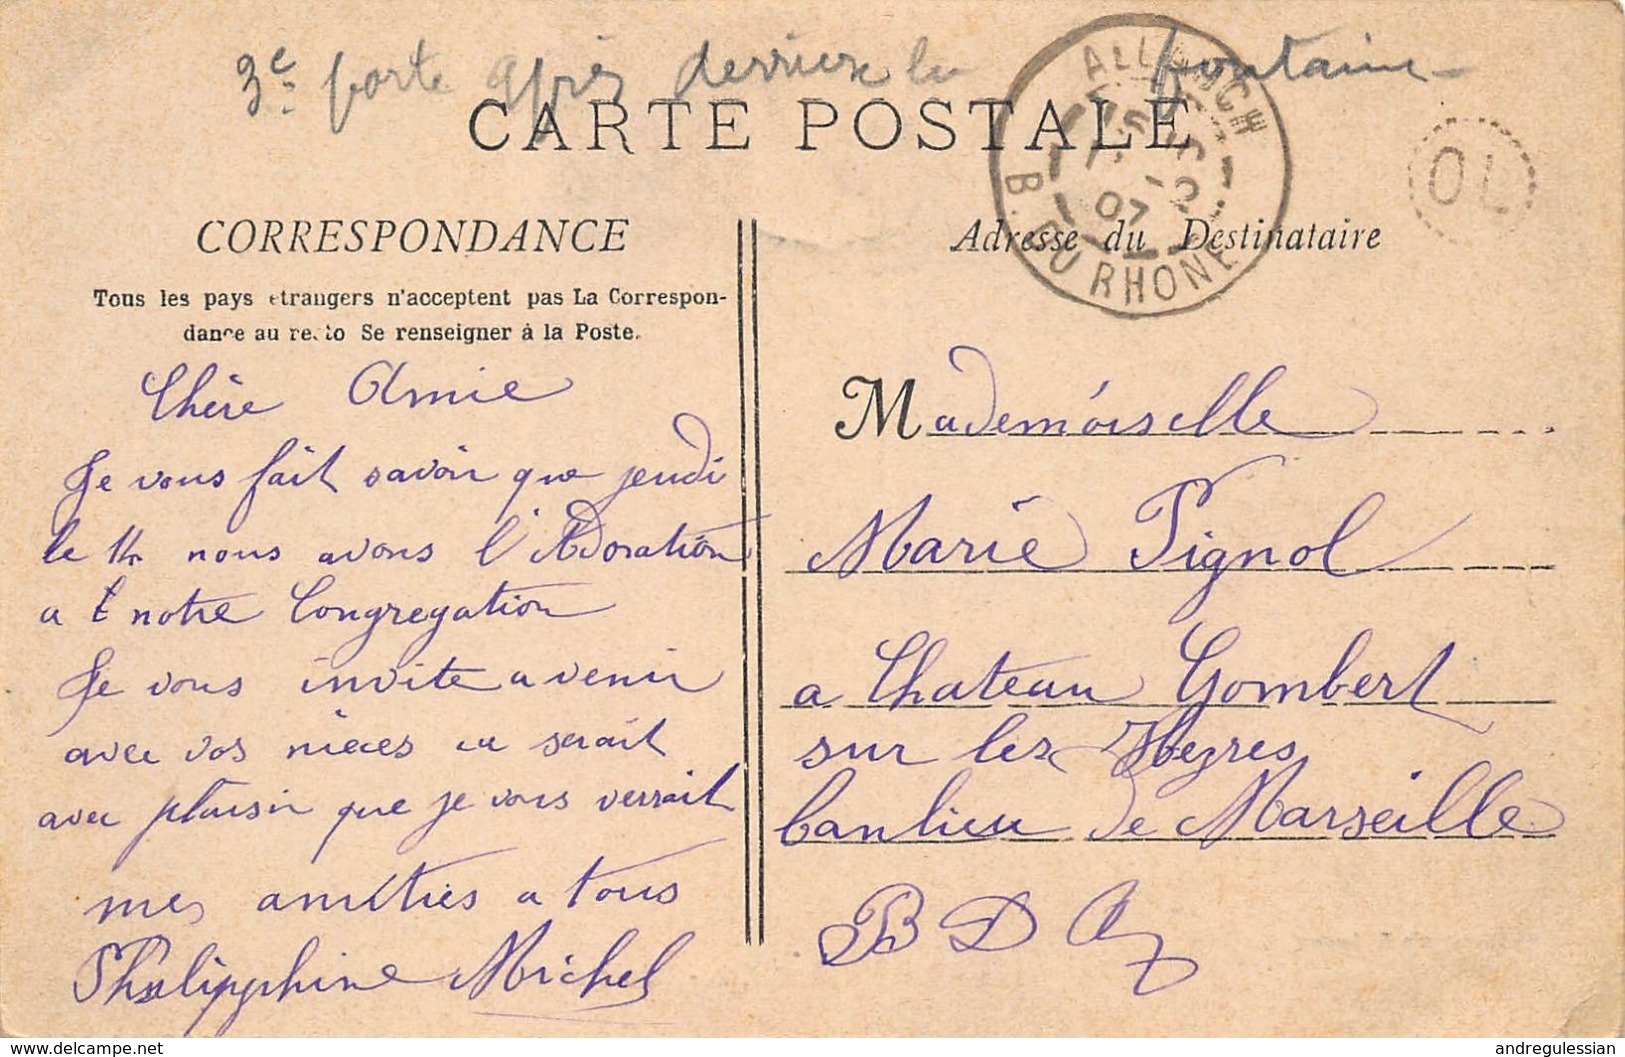 3e porte après derrière la fontaine
CARTE POSTALE
ALLAUCH
B. DU RHONE
07
OL
CORRESPONDANCE
Tous les pays étrangers n'acceptent pas La Correspon-
dance au recto Se renseigner à la Poste.
Adresse du Destinataire
Chère Amie
Je vous fait savoir que jeudi
le 14 nous avons l'Adoration
a notre Congregation
Je vous invite a venir
avec vos nièces ce serait
avec plaisir que je vous verrait
mes amitties a tous
Philipphine Michel
Mademoiselle
Marie Pignol
a Chateau Gombert
sur les
banlieu de Marseille
B D R
andregulessian